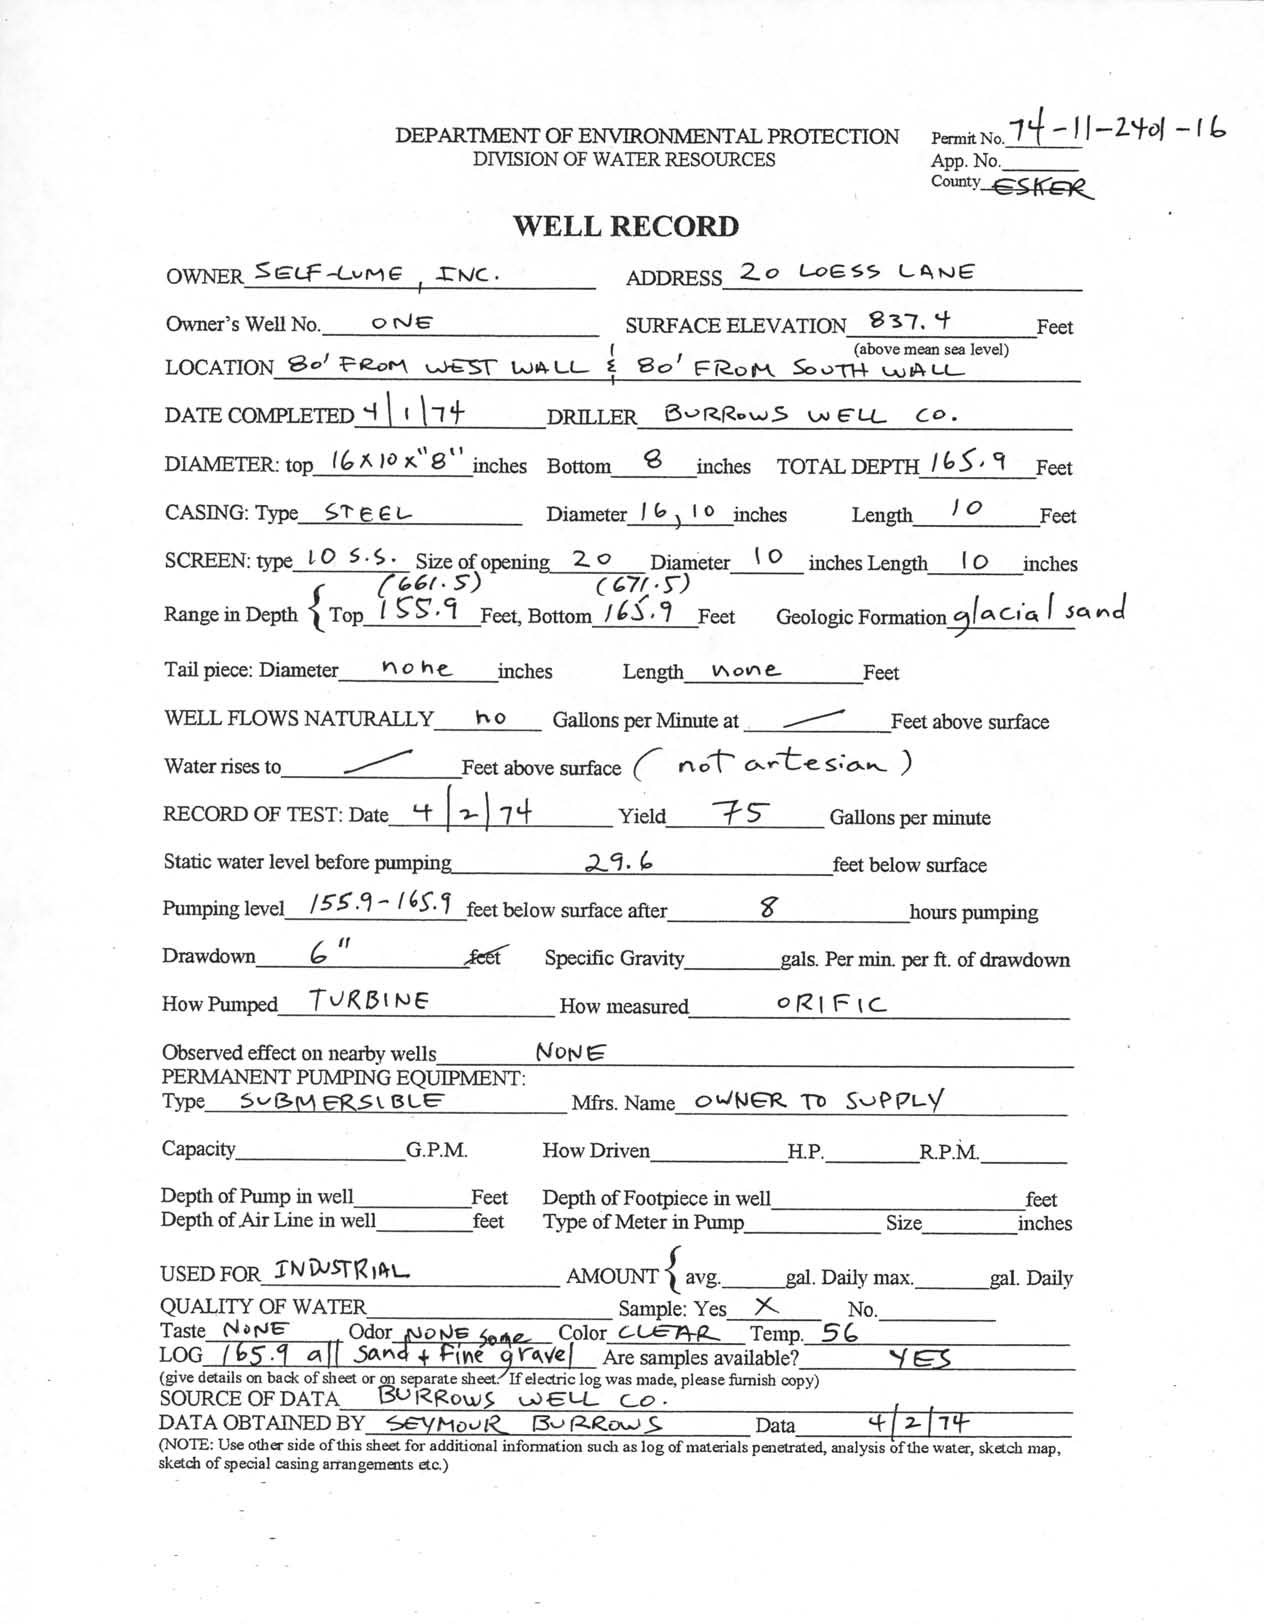 DEPARTMENT OF ENVIRONMENTAL PROTECTION Permit No. 74-11-2401-16
DIVISION OF WATER RESOURCES App. No.
County ESKER
WELL RECORD
OWNER SELF-LUME, INC. ADDRESS 20 LOESS LANE
Owner's Well No. ONE SURFACE ELEVATION 837.4 Feet
(above mean sea level)
LOCATION 80' FROM WEST WALL & 80' FROM SOUTH WALL
DATE COMPLETED 4/1/74 DRILLER BURROWS WELL CO.
DIAMETER: top 16 x 10 x "8" inches Bottom 8 inches TOTAL DEPTH 165.9 Feet
CASING: Type STEEL Diameter 16, 10 inches Length 10 Feet
SCREEN: type 10 S.S. Size of opening 20 Diameter 10 inches Length 10 inches
(661.5) (671.5)
Range in Depth { Top 155.9 Feet, Bottom 165.9 Feet Geologic Formation glacial sand
Tail piece: Diameter none inches Length none Feet
WELL FLOWS NATURALLY no Gallons per Minute at — Feet above surface
Water rises to — Feet above surface (not artesian)
RECORD OF TEST: Date 4/2/74 Yield 75 Gallons per minute
Static water level before pumping 29.6 feet below surface
Pumping level 155.9-165.9 feet below surface after 8 hours pumping
Drawdown 6" feet Specific Gravity gals. Per min. per ft. of drawdown
How Pumped TURBINE How measured ORIFIC
Observed effect on nearby wells NONE
PERMANENT PUMPING EQUIPMENT:
Type SUBMERSIBLE Mfrs. Name OWNER TO SUPPLY
Capacity G.P.M. How Driven H.P. R.P.M.
Depth of Pump in well Feet Depth of Footpiece in well feet
Depth of Air Line in well feet Type of Meter in Pump Size inches
USED FOR INDUSTRIAL AMOUNT { avg. gal. Daily max. gal. Daily
QUALITY OF WATER Sample: Yes X No.
Taste NONE Odor NONE some Color CLEAR Temp. 56
LOG 165.9 all sand + fine gravel Are samples available? YES
(give details on back of sheet or on separate sheet. If electric log was made, please furnish copy)
SOURCE OF DATA BURROWS WELL CO.
DATA OBTAINED BY SEYMOUR BURROWS Data 4/2/74
(NOTE: Use other side of this sheet for additional information such as log of materials penetrated, analysis of the water, sketch map,
sketch of special casing arrangements etc.)